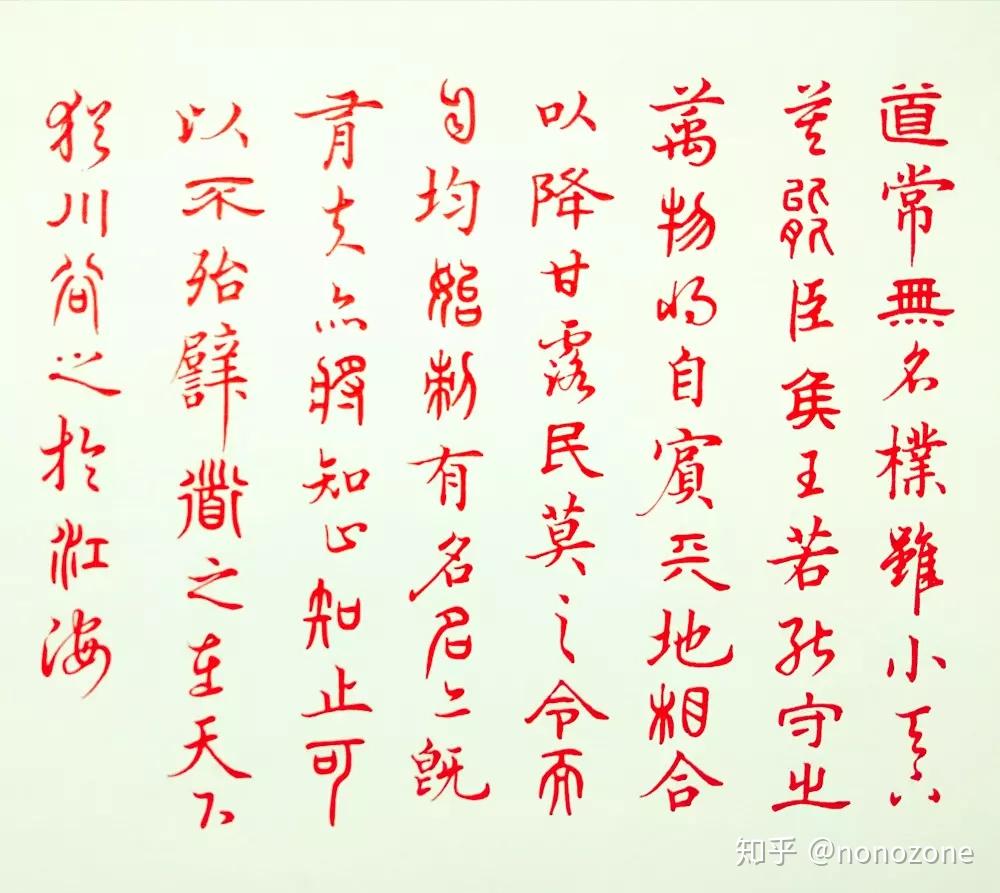 道常無名樸雖小天下
莫能臣侯王若能守之
萬物將自賓天地相合
以降甘露民莫之令而
自均始制有名名亦既
有夫亦將知止知止可
以不殆譬道之在天下
猶川谷之於江海
知乎 @nonozone